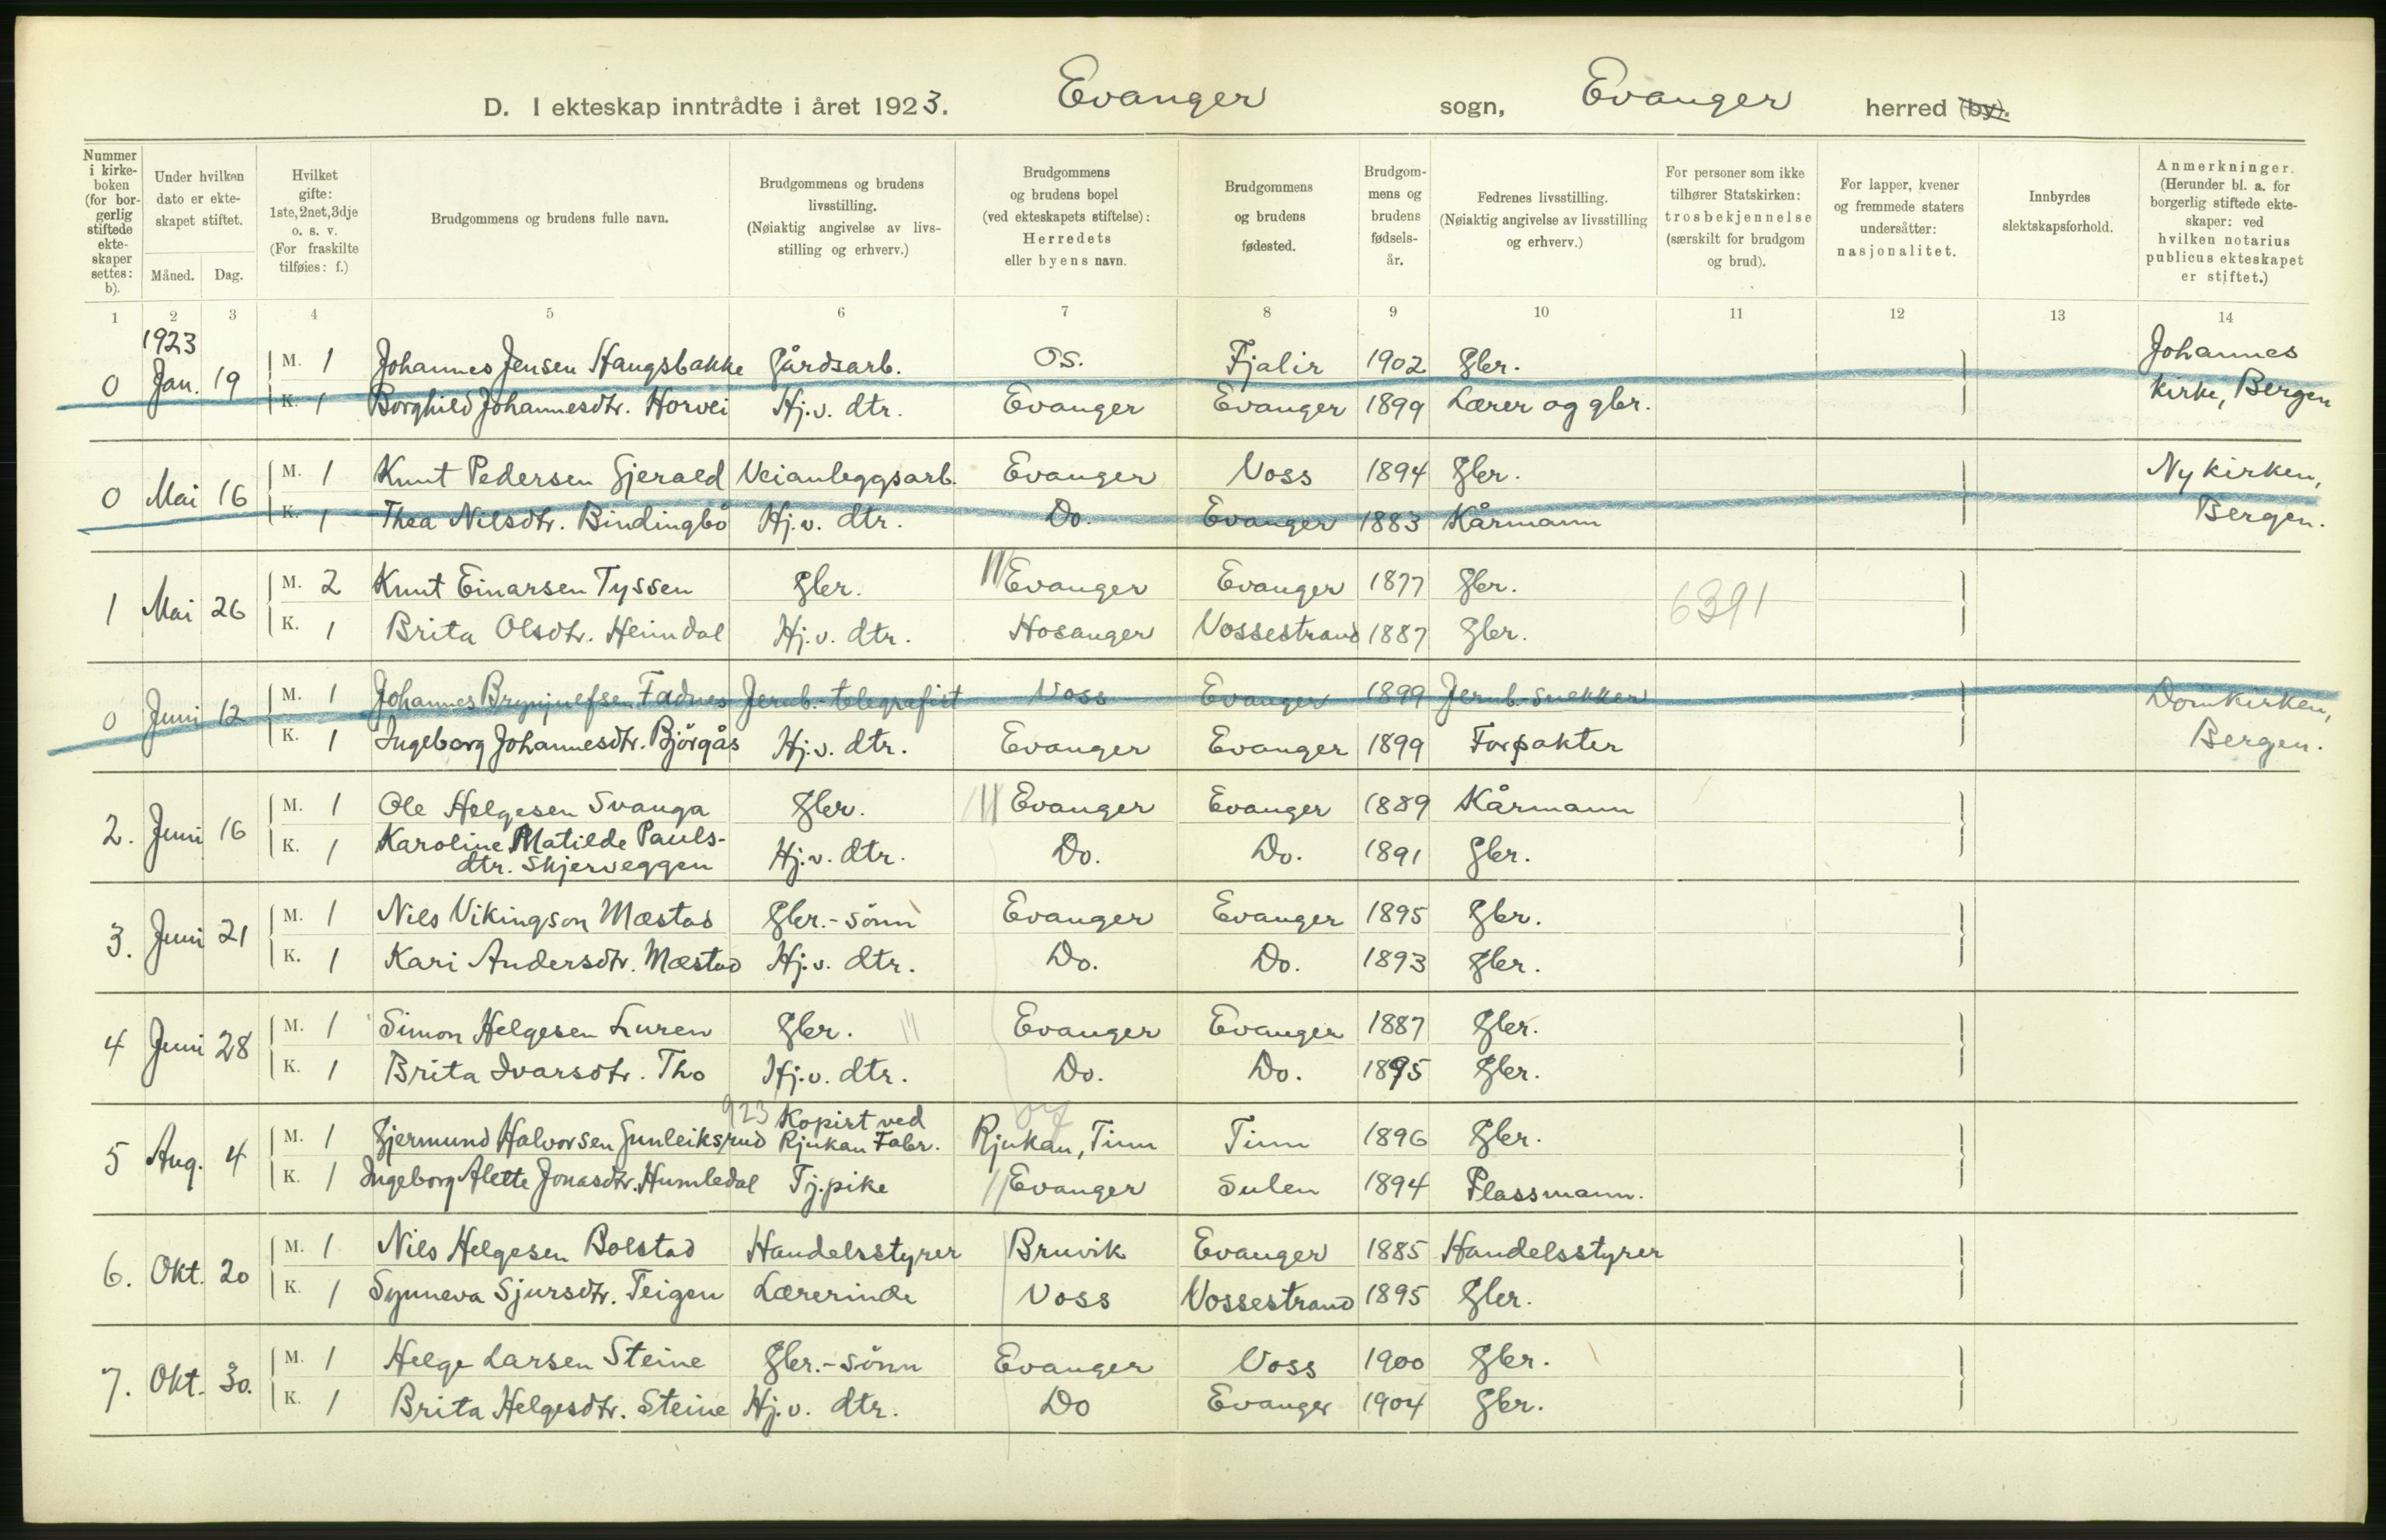 D. I ekteskap inntrådte i året 1923. Evanger sogn, Evanger herred (by).
Nummer i kirkeboken (for borgerlig stiftede ekteskaper settes: b).
Under hvilken dato er ekteskapet stiftet.
Måned. Dag.
Hvilket gifte: 1ste, 2net, 3dje o. s. v. (For fraskilte tilføies: f.)
Brudgommens og brudens fulle navn.
Brudgommens og brudens livsstilling. (Nøiaktig angivelse av livsstilling og erhverv.)
Brudgommens og brudens bopel (ved ekteskapets stiftelse): Herredets eller byens navn.
Brudgommens og brudens fødested.
Brudgommens og brudens fødselsår.
Fedrenes livsstilling. (Nøiaktig angivelse av livsstilling og erhverv.)
For personer som ikke tilhører Statskirken: trosbekjennelse (særskilt for brudgom og brud).
For lapper, kvener og fremmede staters undersåtter: nasjonalitet.
Innbyrdes slektskapsforhold.
Anmerkninger. (Herunder bl. a. for borgerlig stiftede ekteskaper: ved hvilken notarius publicus ekteskapet er stiftet.)
1 2 3 4 5 6 7 8 9 10 11 12 13 14
1923
0 Jan. 19 M. 1 Johannes Jensen Haugsbakke Gårdsarb. Os. Fjalir 1902 Gbr. Johannes
K. 1 Borghild Johannesdtr. Horvei Hj.v. dtr. Evanger Evanger 1899 Lærer og gbr. kirke, Bergen
0 Mai 16 M. 1 Knut Pedersen Gjerald Veianleggsarb. Evanger Voss 1894 Gbr. Nykirken,
K. 1 Thea Nilsdtr. Bindingbø Hj.v. dtr. Do. Evanger 1883 Kårmann Bergen.
1 Mai 26 M. 2 Knut Einarsen Tyssen Gbr. Evanger Evanger 1877 Gbr. 6391
K. 1 Brita Olsdtr. Heimdal Hj.v. dtr. Hosanger Vossestrand 1887 Gbr.
0 Juni 12 M. 1 Johannes Brynjulfsen Fadnes Jernb.-telegrafist Voss Evanger 1899 Jernb.-snekker Domkirken,
K. 1 Ingeborg Johannesdtr. Björgås Hj.v. dtr. Evanger Evanger 1899 Forpakter Bergen.
2. Juni 16 M. 1 Ole Helgesen Svanga Gbr. Evanger Evanger 1889 Kårmann
K. 1 Karoline Matilde Pauls-
dtr. Skjerveggen Hj.v. dtr. Do. Do. 1891 Gbr.
3. Juni 21 M. 1 Nils Vikingson Mæstad Gbr.-sønn Evanger Evanger 1895 Gbr.
K. 1 Kari Andersdtr. Mæstad Hj.v. dtr. Do. Do. 1893 Gbr.
4 Juni 28 M. 1 Simon Helgesen Luren Gbr. Evanger Evanger 1887 Gbr.
K. 1 Brita Ivarsdtr. Tho Hj.v. dtr. Do. Do. 1895 Gbr.
923 Kopist ved
5 Aug. 4 M. 1 Gjermund Halvorsen Gunleiksrud Rjukan Fabr. Rjukan, Tinn Tinn 1896 Gbr.
K. 1 Ingeborg Alette Jonasdtr. Humledal Tj.pike Evanger Sulen 1894 Plassmann.
6. Okt. 20 M. 1 Nils Helgesen Bolstad Handelsstyrer Bruvik Evanger 1885 Handelsstyrer
K. 1 Synneva Sjursdtr. Teigen Lærerinde Voss Vossestrand 1895 Gbr.
7. Okt. 30. M. 1 Helge Larsen Steine Gbr.-sønn Evanger Voss 1900 Gbr.
K. 1 Brita Helgesdtr. Steine Hj.v. dtr. Do Evanger 1904 Gbr.